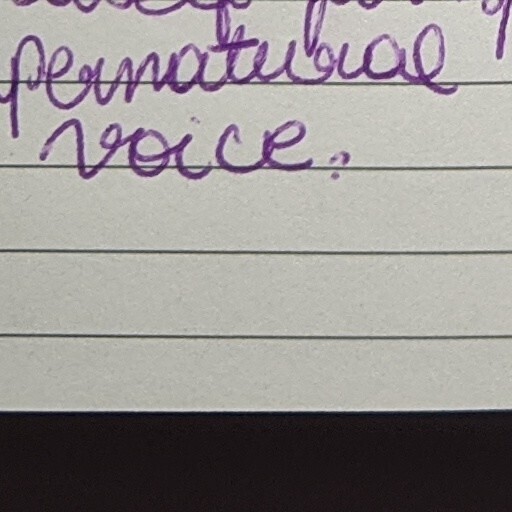 pernatural
voice.